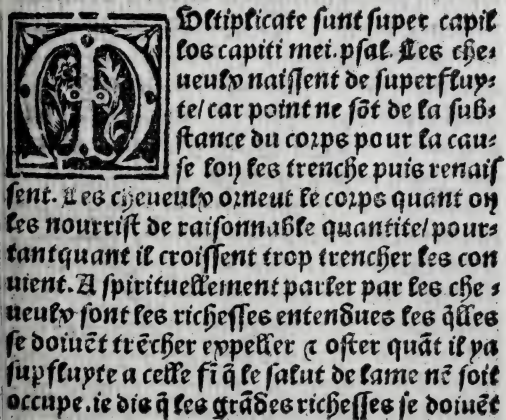 MUltiplicate sunt super capil
los capiti mei. psal. Les che⸗
ueulx naissent de superfluy⸗
te/ car point ne sõt de la sub⸗
stance du corps pour la cau⸗
se lon les trenche puis renais
sent. Les cheueulx orneut le corps quant on
les nourrist de raisonnable quantite/ pour⸗
tantquant il croissent trop trencher les con
uient. A spirituellement parler par les che⸗
ueulx sont les richesses entendues les q̃lles
se doiuẽt trẽcher expeller ⁊ oster quãt il ya
supfluyte a celle fĩ q̃ le salut de lame nẽ soit
occupe. ie dis q̃ les grãdes richesses se doiuẽt